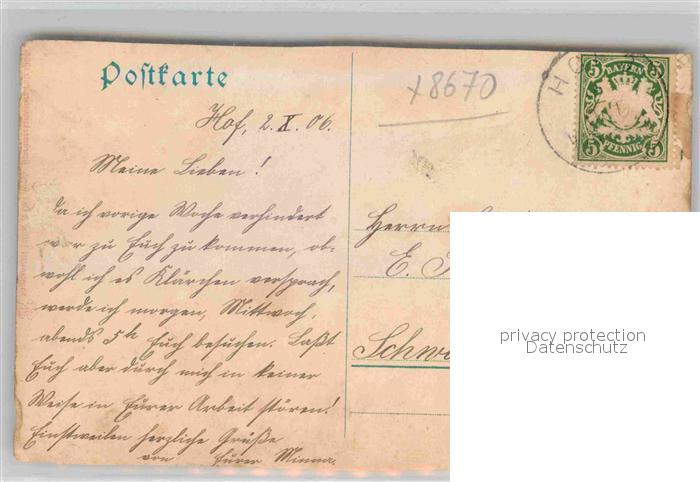 Postkarte
+8670
HOF
5 BAYERN 5
5 PFENNIG 5
Hof, 2. X. 06.
Meine Lieben!
Da ich vorige Woche verhindert
war zu Euch zu kommen, ob-
wohl ich es Klärchen versprach,
werde ich morgen, Mittwoch,
abends 5h Euch besuchen. Laßt
Euch aber durch mich in keiner
Weise in Eurer Arbeit stören!
Einstweilen herzliche Grüße
von Eurer Minna.
Herrn
E.
Schw
privacy protection
Datenschutz